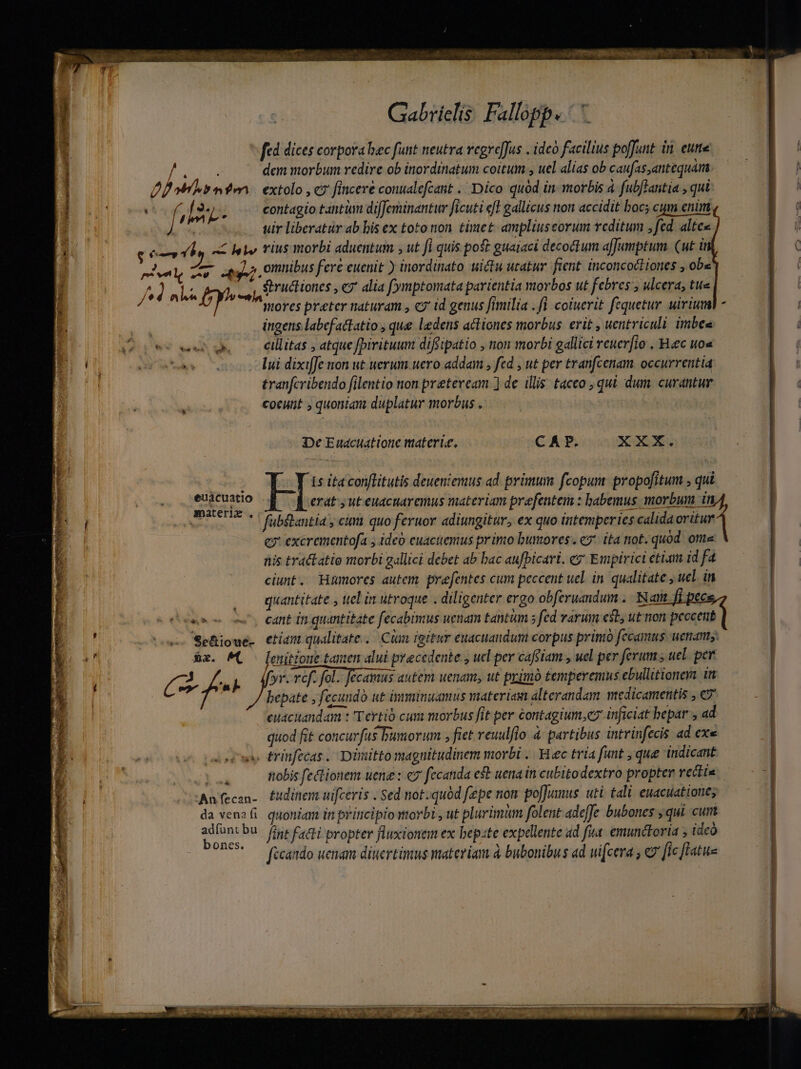 Gabrielis Fallopp.
fed dices corpora hæc funt neutra regreſſus . ideò facilius poſſunt in eun⸗
dem morbum redire ob inordinatum coitum , uel alias ob cauſas,antequàm
extolo , & ſincerè conualeſcant . Dico quòd in morbis à ſubſtantia , qui
contagio tantùm diſſeminantur ſicuti eſt gallicus non accidit hoc; cum enim
uir liberatur ab his ex toto non timet ampliuseorum reditum , ſed alte⸗
rius morbi aduentum , ut ſi quis poſt guaiaci decoctum aſſumptum (ut in
omnibus ferè euenit ) inordinato uictu utatur fient inconcoctiones , ob⸗
ſtructiones , & alia ſymptomata parientia morbos ut febres , ulcera, tu⸗
mores præter naturam , & id genus ſimilia . ſi coiuerit ſequetur uirium
ingens labefactatio , quæ lædens actiones morbus erit , uentriculi imbe⸗
cillitas , atque ſpirituum diſſipatio , non morbi gallici reuerſio . Hæc uo⸗
lui dixiſſe non ut uerum uero addam , ſed , ut per tranſcenam occurrentia
tranſcribendo ſilentio non prætereàm ] de illis taceo , qui dum curantur
coeunt , quoniam duplatur morbus .
De Euacuatione materiæ. CAP. XXX.
His ita conſtitutis deueniemus ad primum ſcopum propoſitum , qui
euacuatio
materiæ .
erat , ut euacuaremus materiam præſentem : habemus morbum in
ſubſtantia , cum quo feruor adiungitur, ex quo intemperies calida oritur
& excrementoſa , ideò euacuemus primo humores. & ita not. quòd om⸗
nis tractatio morbi gallici debet ab hac auſpicari. & Empirici etiam id fa
ciunt . Humores autem præſentes cum peccent uel in qualitate , uel in
quantitate , uel in utroque . diligenter ergo obſeruandum . Nam ſi pec⸗
cant in quantitate ſecabimus uenam tantùm ; ſed rarum eſt, ut non peccent
Sectione-
etiam qualitate . Cum igitur euacuandum corpus primò ſecamus uenam,
lenitione tamen alui præcedente , uel per caſſiam , uel per ſerum , uel per
ſyr. roſ. ſol. ſecamus autem uenam, ut primò temperemus ebullitionem in
hepate , ſecundò ut imminuamus materiam alterandam medicamentis , &
euacuandam : Tertiò cum morbus ſit per contagium,& inficiat hepar , ad
quod fit concurſus humorum , fiet reuulſio à partibus intrinſecis ad ex⸗
trinſecas . Dimitto magnitudinem morbi . Hæc tria ſunt , quæ indicant
nobis ſectionem uenæ : & ſecanda eſt uena in cubito dextro propter recti⸗
An ſecan-
da vena ſi
adſunt bu
bones.
tudinem uiſceris . Sed not. quòd ſæpe non poſſumus uti tali euacuatione,
quoniam in principio morbi , ut plurimùm ſolent adeſſe bubones , qui cum
ſint facti propter fluxionem ex hepate expellente ad ſua emunctoria , ideò
ſecando uenam diuertimus materiam à bubonibus ad uiſcera , & ſic ſtatu⸗